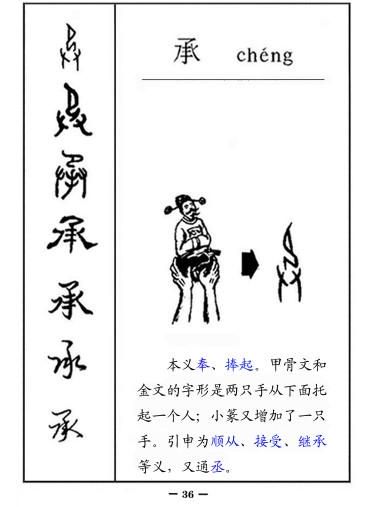 承 chéng
本义奉、捧起。甲骨文和
金文的字形是两只手从下面托
起一个人；小篆又增加了一只
手。引申为顺从、接受、继承
等义，又通丞。
承
承
承
承
— 36 —